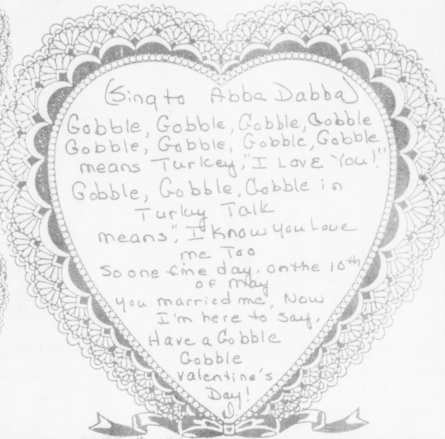 (Sing to Abba Dabba)
Gobble, Gobble, Gobble, Gobble
Gobble, Gobble, Gobble, Gobble
means Turkey, "I Love You!"
Gobble, Gobble, Gobble in
Turkey Talk
means", I know you Love
me Too
So one fine day, on the 10th
of May
you married me, Now
I'm here to say,
Have a Gobble
Gobble
valentine's
Day!